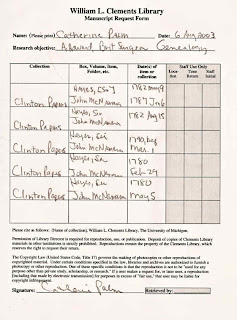 William L. Clements Library
Manuscript Request Form
Name: (Please print) Catherine Palm Date: 6 Aug 2003
Research objective: Port Surgeon Genealogy
Collection
Box, Volume, Item, Folder, etc.
Date(s) of item or collection
Staff Use Only
Location
Time Return
Staff Initial
Hayes, Esq 1782 May 9
Clinton Papers John McNamara
Hayes, Sir 1782 Aug 15
Clinton Papers John McNamara
Hayes, Esq
Clinton Papers John McNamara
Hayes, Esq 1780
Clinton Papers John McNamara
1780
Clinton Papers John McNamara May 5
Please cite as follows: (Name of collection), William L. Clements Library, The University of Michigan.
Permission of Library Director is required for reproduction, use, or publication. Deposit of copies of Clements Library
materials in other institutions is strictly prohibited. Reproductions remain the property of the Clements Library, which
reserves the right to request their return.
The Copyright Law (United States Code, Title 17) governs the making of photocopies or other reproductions of
copyrighted material. Under certain conditions specified in the law, libraries and archives are authorized to furnish a
photocopy or other reproduction. One of these specific conditions is that the reproduction is not to be "used for any
purpose other than private study, scholarship, or research." If a user makes a request for, or later uses, a reproduction
(including that made by electronic transmission) for purposes in excess of "fair use," that user may be liable for
copyright infringement.
Signature: Catherine Palm Retrieved by: